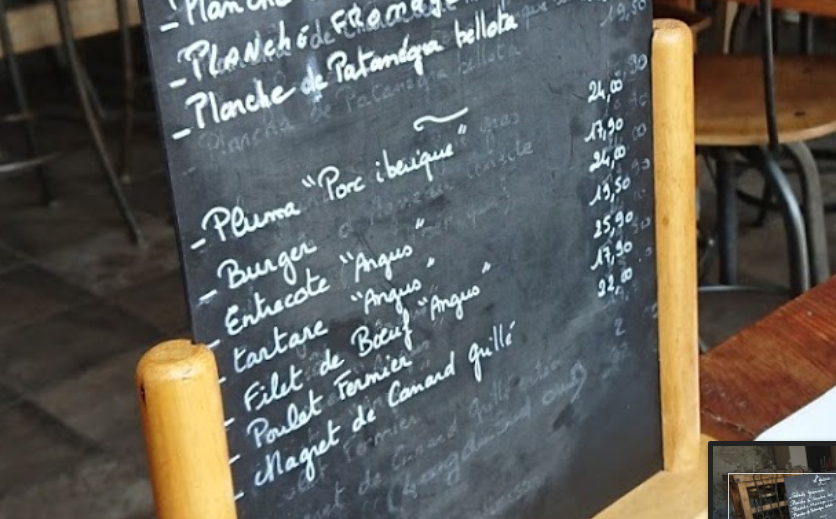 - Planche
- PLANCHE FROMAGE
- Planche de Patanégra bellota
- Pluma "Porc iberique" 24,00
- Burger 17,90
- Entrecote "Angus" 24,00
- tartare "Angus" 19,50
- Filet de Bœuf "Angus" 25,90
- Poulet Fermier 17,90
- Magret de Canard grillé 22,00